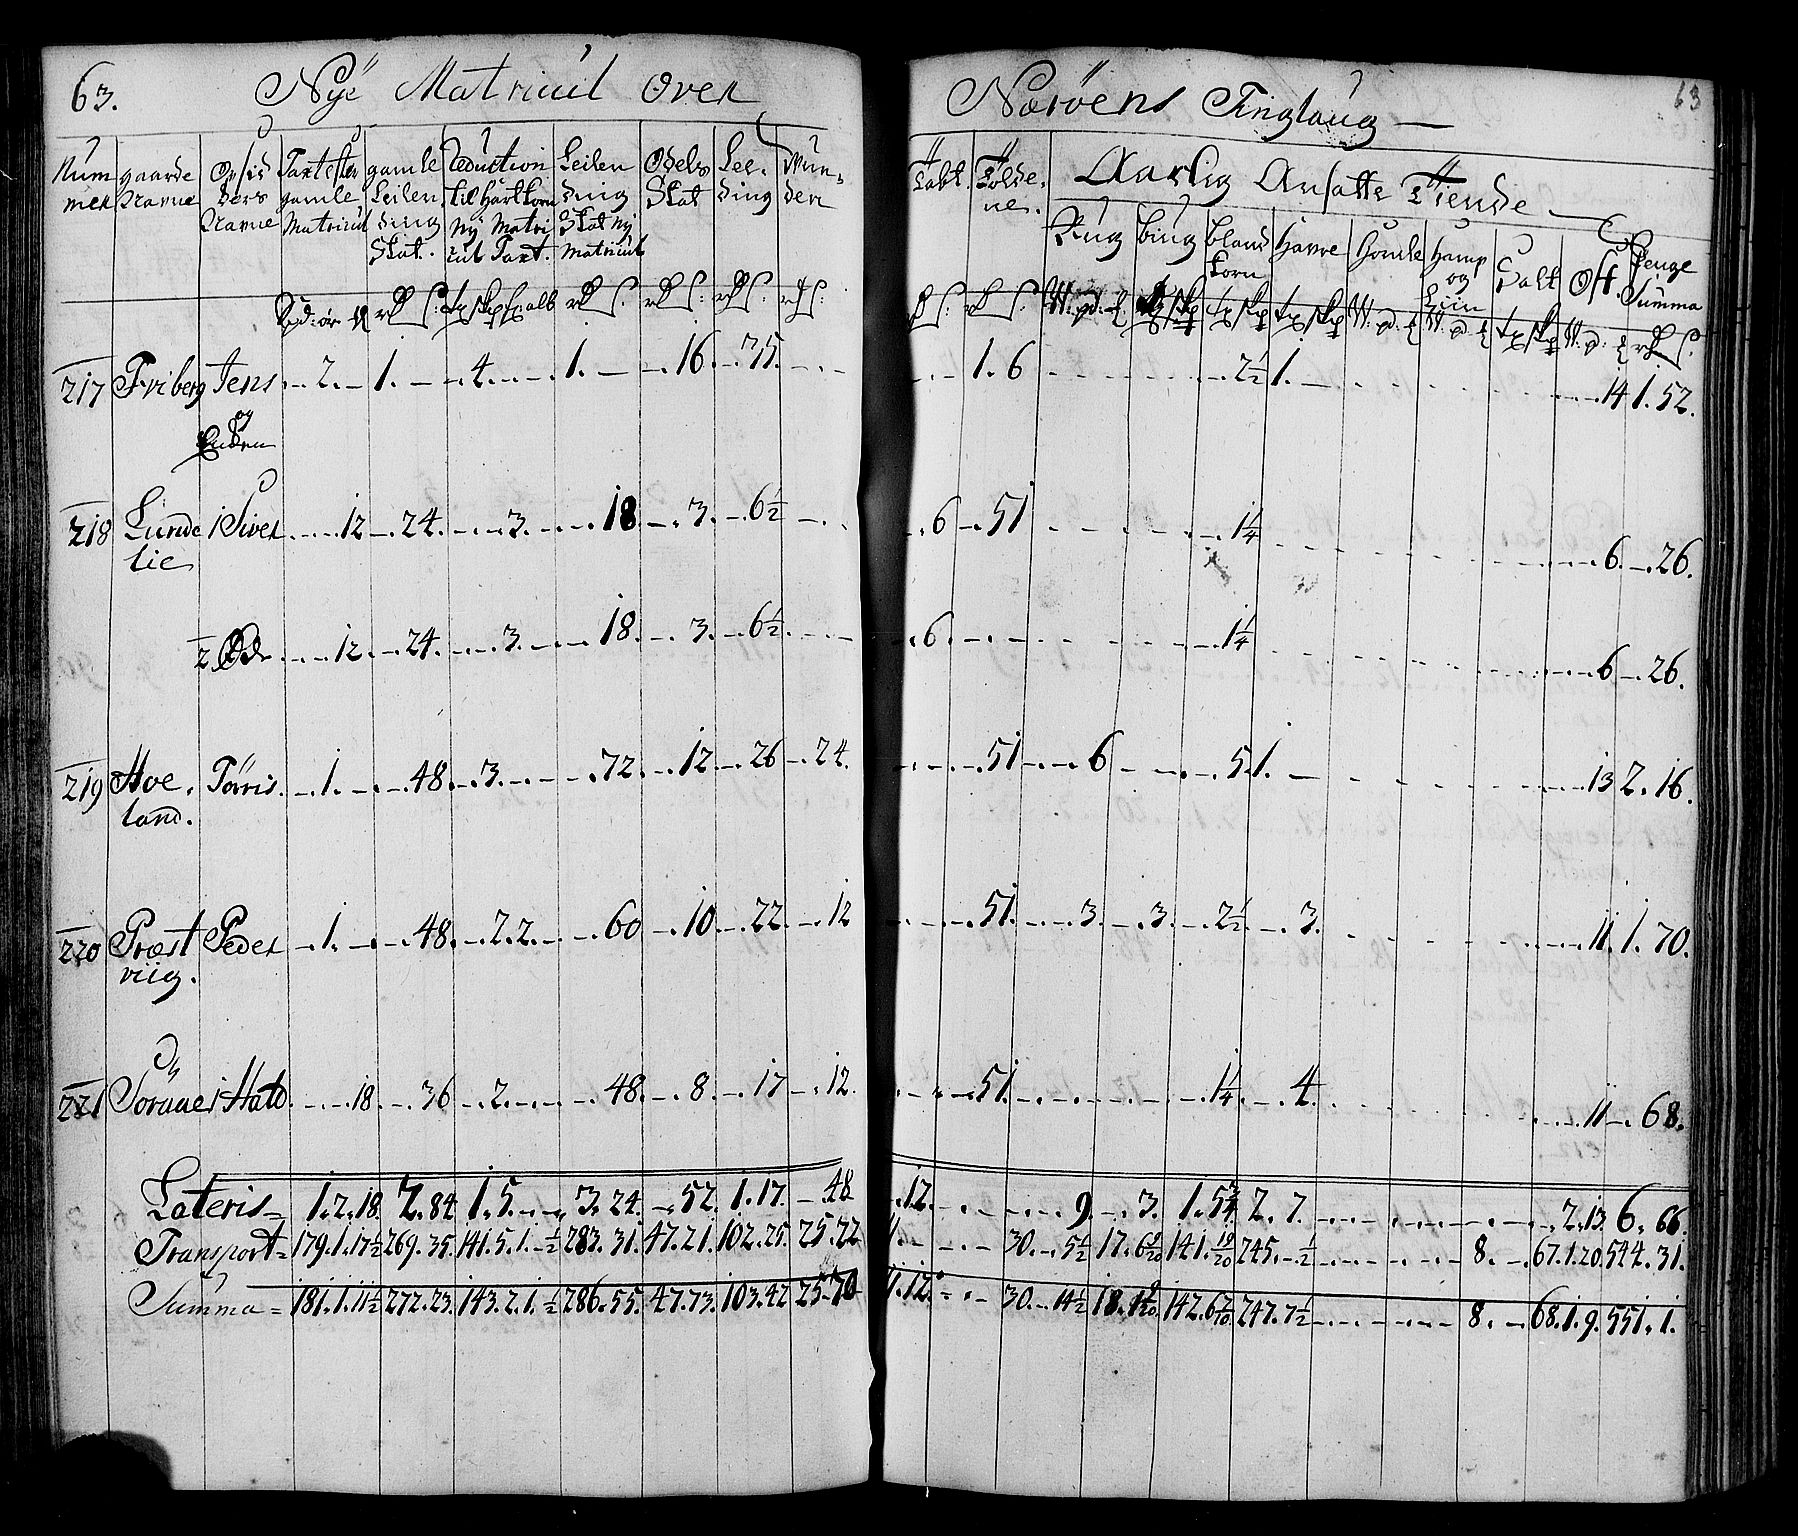 63. Nÿe Matricul Over
Nærøens Tinglaug 63
Num mer | gaarde Navne | Opsid ders Navne | Taxt efter gamle Matricul | gamle Leilen ding Skat. | Reduction til Hartkorn Ny Matri cul Taxt. | Leilen ding Skat Nÿ Matricul | Odels Skat | Lee- ding
Told | Aarlig Ansatte Tiende
Rug | biug | bland korn | havre | Hamp og Liin | Salt | Ost | Penge Summa
217 Friberg Jens og Enken - 2 - 1. - 4. - 1. - 16 - 35. - - 1. 6 - 2½ 1. - 14 1. 52.
218 Lunde lie 1 Siver - 12 - 24. - 3. - 18 - 3. - 6½ - . 6 - 51 - 1¼ - 6. - 26.
2. Ode - 12 - 24. - 3. - 18. - 3. - 6½ - . 6 - 1¼ - 6 - 26.
219 Hoe- land. Törris. - 1. - 48. - 3. - 72. - 12 - 26 - 24. - 51 - 6 - 5. 1. - 13 2. 16.
220 Præst viig. Peder - 1. - 48. - 2. 2. - 60 - 10 - 22. - 12 - 51. - 3. - 3. - 2½ - 3. - 11. 1. 70.
221 Hald - 18. - 36 - 2. - 48. - 8. - 17 - 12. - 51. - 1¼ - 4. - 11 - 68.
Lateris = 1. 2. 18. 2. 84. 1. 5. - 3. 24. - 52. 1. 17. - 48 . 12. - 9. - 3. 1. 5¾ 2. 7. - 2. 13. 6. 66.
Transport = 179. 1. 17½ 269. 35. 141. 5. 1. ½ 283. 31. 47. 21. 102. 25. 25. 22 - 30. - 5½ 17. 141. 245. - ½ 8. - 67. 1. 20. 544. 31.
Summa = 181. 1. 11½ 272. 23. 143. 2. 1. ½ 286. 55. 47. 73. 103. 42 25 - 70 . 12. - 30. - 14½ 18. 142. 247. 7½ 8. - 68. 1. 9. 551. 1.